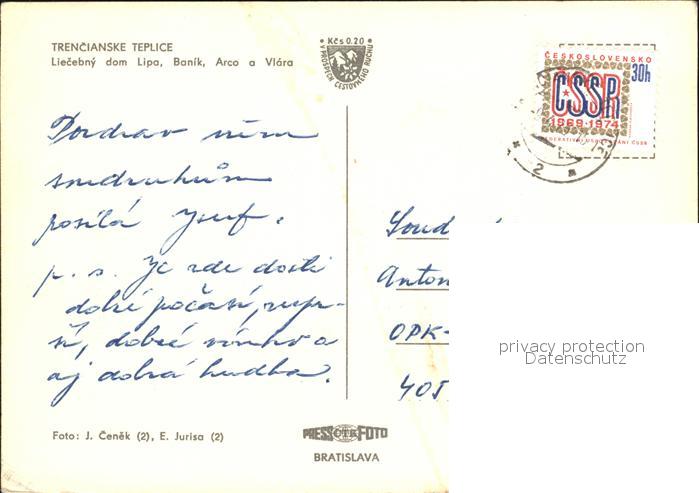 TRENČIANSKE TEPLICE
Liečebný dom Lipa, Baník, Arco a Vlára
Kčs 0.20
V PROSPĚCH CESTOVNÉHO RUCHU
ČESKOSLOVENSKO
30h
ČSSR
1969-1974
2
Pozdrav všem
soudruhům
posílá Josef.
p. s. Je zde dosti
dobré počasí, nepr-
ší, dobré vínko a
aj dobrá hudba.
Soud
Anton
OPK-
405
privacy protection
Datenschutz
Foto: J. Čeněk (2), E. Jurisa (2)
PRESSFOTO
BRATISLAVA